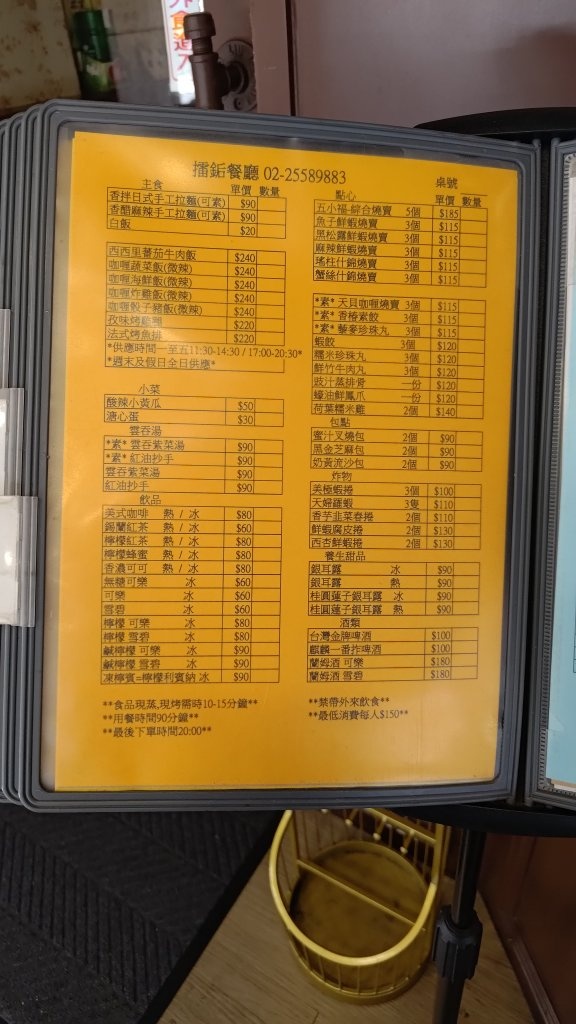 外
食
進
擂鉐餐廳 02-25589883
桌號
主食 單價 數量
香拌日式手工拉麵(可素) $90
香醋麻辣手工拉麵(可素) $90
白飯 $20
西西里蕃茄牛肉飯 $240
咖喱蔬菜飯(微辣) $240
咖喱海鮮飯(微辣) $240
咖喱炸雞飯(微辣) $240
咖喱骰子豬飯(微辣) $240
孜味烤雞腿 $220
法式烤魚排 $220
*供應時間一至五11:30-14:30 / 17:00-20:30*
*週末及假日全日供應*
小菜
酸辣小黃瓜 $50
溏心蛋 $30
雲吞湯
*素* 雲吞紫菜湯 $90
*素* 紅油抄手 $90
雲吞紫菜湯 $90
紅油抄手 $90
飲品
美式咖啡 熱 / 冰 $80
錫蘭紅茶 熱 / 冰 $60
檸檬紅茶 熱 / 冰 $80
檸檬蜂蜜 熱 / 冰 $80
香濃可可 熱 / 冰 $80
無糖可樂 冰 $60
可樂 冰 $60
雪碧 冰 $60
檸檬 可樂 冰 $80
檸檬 雪碧 冰 $80
鹹檸檬 可樂 冰 $90
鹹檸檬 雪碧 冰 $90
凍檸賓=檸檬利賓納 冰 $90
**食品現蒸,現烤需時10-15分鐘**
**用餐時間90分鐘**
**最後下單時間20:00**
點心 單價 數量
五小福-綜合燒賣 5個 $185
魚子鮮蝦燒賣 3個 $115
黑松露鮮蝦燒賣 3個 $115
麻辣鮮蝦燒賣 3個 $115
瑤柱什錦燒賣 3個 $115
蟹絲什錦燒賣 3個 $115
*素* 天貝咖喱燒賣 3個 $115
*素* 香椿素餃 3個 $115
*素* 藜麥珍珠丸 3個 $115
蝦餃 3個 $120
糯米珍珠丸 3個 $120
鮮竹牛肉丸 3個 $120
豉汁蒸排骨 一份 $120
蠔油鮮鳳爪 一份 $120
荷葉糯米雞 2個 $140
包點
蜜汁叉燒包 2個 $90
黑金芝麻包 2個 $90
奶黃流沙包 2個 $90
炸物
美極蝦捲 3個 $100
天婦羅蝦 3隻 $110
香芋韭菜春捲 2個 $110
鮮蝦腐皮捲 2個 $130
西杏鮮蝦捲 2個 $130
養生甜品
銀耳露 冰 $90
銀耳露 熱 $90
桂圓蓮子銀耳露 冰 $90
桂圓蓮子銀耳露 熱 $90
酒類
台灣金牌啤酒 $100
麒麟一番拃啤酒 $100
蘭姆酒 可樂 $180
蘭姆酒 雪碧 $180
**禁帶外來飲食**
**最低消費每人$150**